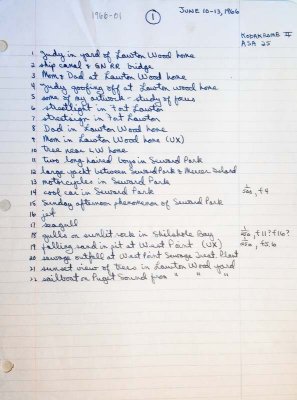 1966-01
1
JUNE 10-13, 1966
KODACHROME II
ASA 25
1 Judy in yard of Lawton Wood home
2 ship canal & GN RR bridge
3 Mom & Dad at Lawton Wood home
4 Judy goofing off at Lawton Wood home
5 some of my artwork - study of forms
6 streetlight in Fort Lawton
7 streetsign in Fort Lawton
8 Dad in Lawton Wood home
9 Mom in Lawton Wood home (UX)
10 tree near LW home
11 two long haired boys in Seward Park
12 large yacht between Seward Park & Mercer Island
13 motorcycles in Seward Park
14 cool car in Seward Park f4
15 Sunday afternoon phenomenon of Seward Park
16 jet
17 seagull
18 gulls on sunlit rock in Shilshole Bay f11? f16?
19 falling sand in pit at West Point (UX) f5.6
20 sewage outfall at West Point Sewage Treat. Plant
21 sunset view of trees in Lawton Wood yard
22 sailboat on Puget Sound from " " "